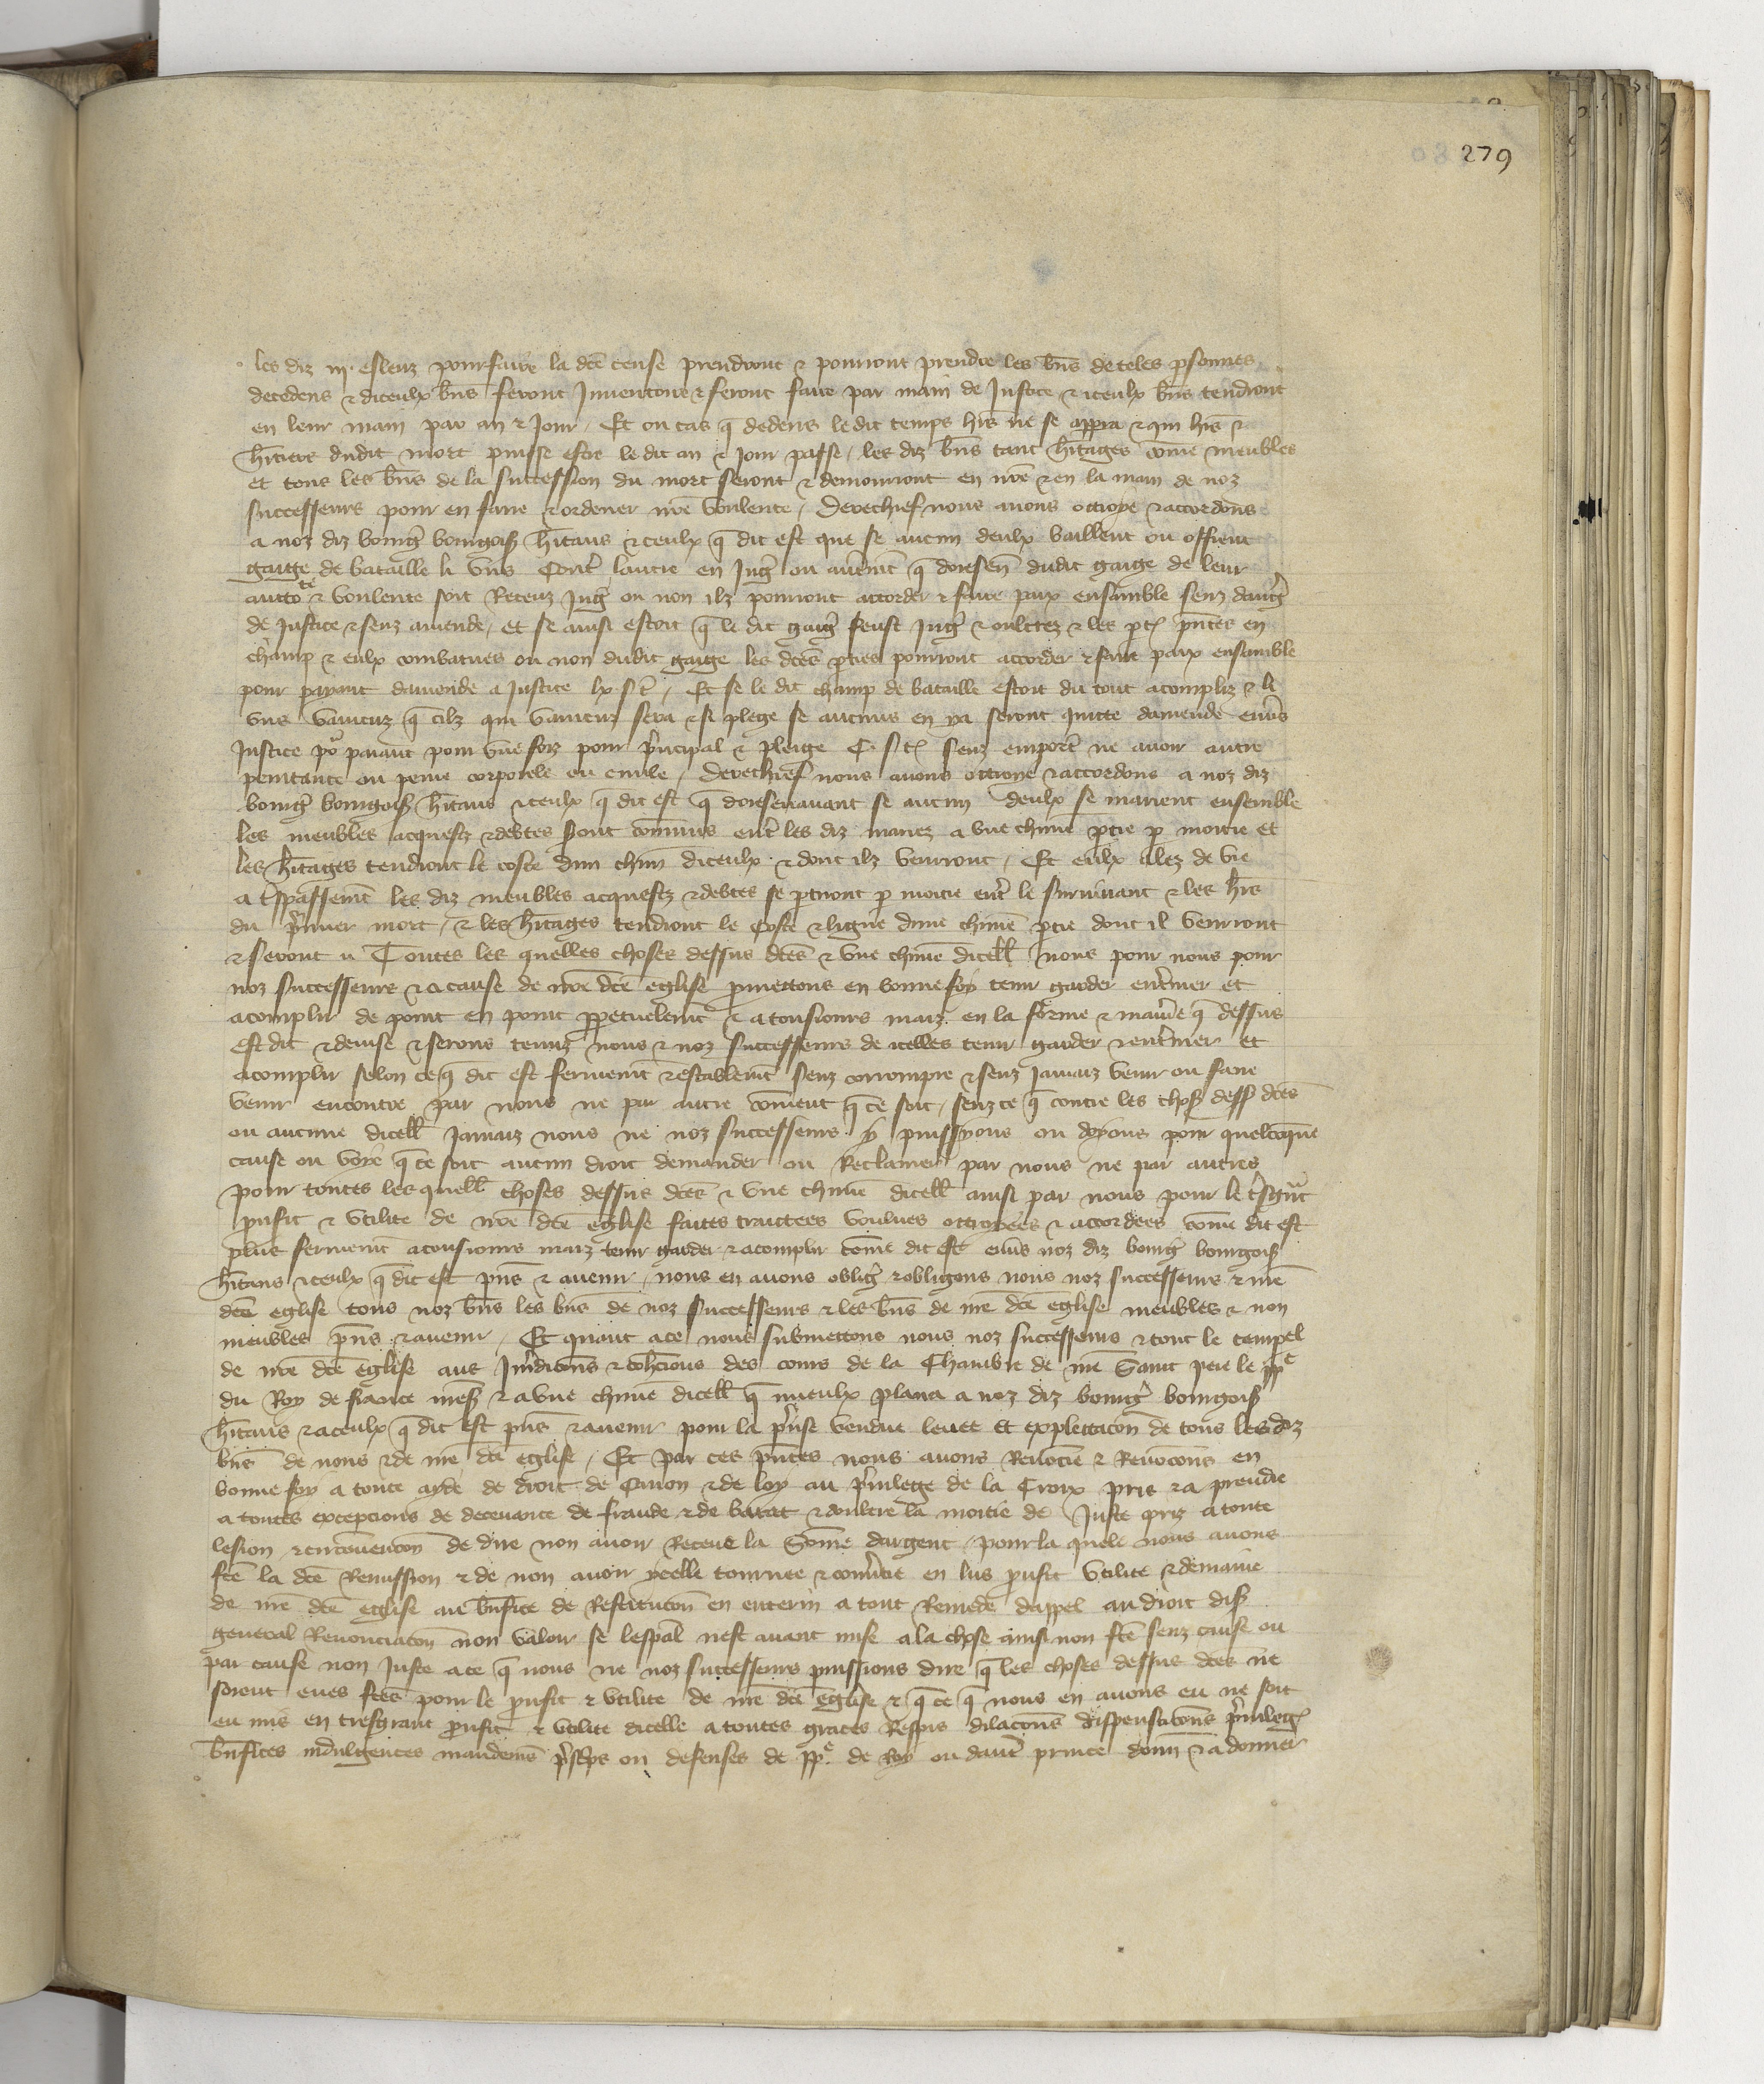 279
les diz iij. esleuz pour faire la dcē cense prendront & pourront prendre les bn̄s de teles ꝑsonnes
decedens & diceulx bn̄s feront Inuentoire & feront faire par main de Justice & iceulx bn̄s tendront
en leur main par an & Jour / Et ou cas q̄ dedens le dit temps hirs ne se appra & qui hirs &
hītiers dudit mort puisse estre le dit an & Jour passe / les diz bn̄s tant hītages cōme meubles
et tous les bn̄s de la succession du mort seront & demourront en nrē & en la main de noz
successeurs pour en faire & ordener nrē voulente / Derechief nous auons ottroye & accordons
a noz diz bourg̉ bourgois hītans & ceulx q̄ dit est que se aucun deulx baillent ou offrent
gaige de bataille li vns cont̉ lautre en Jug̉ ou aut̉emt̄ q̄ doresen̄ dudit gaige de leur
auctote & voulente soit Receuz Jug̉ ou non ilz pourront accorder & faire paix ensamble senz dang̉
de Justice & senz amende / et se ainsi estoit q̄ le dit gaig̉ feust Jug̉ & oultrez & les ꝑt̄ pn̄tes en
champ & eulx combatues ou non dudit gaige les dcēs ꝑties pourront accorder & faire paix ensamble
pour paiant damende a Justice lx s t̉ / Et se le dit champ de bataille estoit du tout acompliz & li
vns vaincuz q̄ cilz qui vaincuz sera & si plege se aucuns en ya seront quitte damende enủs
Justice po paiant pour vne foiz pour p̉ncipal & pleige C. s t̄ senz emport̉ ne auoir autre
penitance ou peine corporele ou ciuile / Derechief nous auons ottroye & accordons a noz diz
bourg̉ bourgois hītans & ceulx q̄ dit est q̄ doresenauant se aucun deulx se marient ensemble
les meubles acquestz & debtes seront cōmuns ent̉ les diz mariez a vne chūn ꝑtie ꝑ moitie et
les hītages tendront le coste dun chūn diceulx & dont ilz venront / Et eulx alez de vie
a t̉spassemt̄ les diz meubles acquestz & debtes se ꝑtiront ꝑ moitie ent̉ le suruiuant & les hirs
du p̉mier mort / & les hītages tendront le coste & ligne dune chūne ꝑtie dont il venront
& seront Toutes les quelles choses dessus dcēs & vne chūne dicell̄ nous pour nous pour
noz successeurs & a cause de nrē dcē eglise ꝓmettons en bonne foy tenir garder ent̉iner et
acomplir de point en point ꝑpetuelemt̄ & a tousiours maiz en la forme & manie̓ q̄ dessus
est dit & deuise & serons tenuz nous & noz successeurs de icelles tenir garder & ent̉iner et
acomplir selon ce q̄ dit est fermemt̄ & establemt̄ senz corrompre & senz Jamaiz venir ou faire
venir encontre par nous ne par autre cōment q̄ ce soit / senz ce q̄ contre les chos̉ dess̉ dcēs
ou aucune dicell̄ Jamaiz nous ne noz successeurs y puissyons ou doyons pour quelcōque
cause ou voye q̄ ce soit aucun droit demander ou Reclamer par nous ne par autres
pour toutes les quell̄ choses dessus dcēs & vne chūne dicell̄ ainsi par nous pour le t̉sgrāt
ꝓufit & vtilite de nrē dcē eglise faites traictees voulues ottroyees & accordees cōme dit est
plus fermemt̄ a tousiours maiz tenir garder & acomplir cōme dit est enủs noz diz bourg̉ bourgois
hītans & ceulx q̄ dit est pn̄s & auenir / nous en auons oblig̉ & obligons nous noz successeurs & nrē
dcē eglise tous noz bn̄s les bn̄s de noz successeurs & les bn̄s de nrē dcē eglise meubles & non
meubles pn̄s & auenir / Et quant a ce nous submettons nous noz successeurs & tout le tempel
de nrē dcē eglise aus Jurīdicons & cohercions des cours de la Chambre de nrē Saint pere le ppe
du Roy de france & a vne chūne dicell̄ q̄ mieulx plaira a noz diz bourg̉ bourgois
hītans & a ceulx q̄ dit est pn̄s & auenir pour la p̉nse vendue leuee et explettacōn de tous les diz
bn̄s de nous & de nrē dcē eglise / Et par ces pn̄tes nous auons Renōcie & Renōcons en
bonne foy a toute ayde de droit de Canon & de loy au p̉uilege de la Croix prise & a prendre
a toutes excepcions de deceuance de fraude & de barat & doultre la moitie de Juste pris a toute
lesion & circōuencōn de dire non auoir Receue la Sōme dargent / pour la quele nous auons
fcē la dcē Remission & de non auoir ycelle tournee & conủtie en lus ꝓufit vtilite & demaine
de nrē dcē eglise au bn̄fice de Restitutcōn en enterin a tout Remede dappel au droit dis̉
general Renonciatcōn non valoir se lesp̄al nest auant mise a la chose ainsi non fcē senz cause ou
par cause non Juste a ce q̄ nous ne noz successeurs puissions dire q̄ les choses dessus dcēs ne
soient eues fcēs pour le ꝓufit & vtilite de nrē dcē eglise & q̄ ce q̄ nous en auons eu ne soit
eu mis en tresgrant ꝓufit & vtilite dicelle a toutes graces Respis dilacōns dispensacōns p̉uileg̉
bn̄fices indulgences mandemēs p̉scrips ou defenses de ppe. de Roy ou daut̉ prince donn̄ & a donner